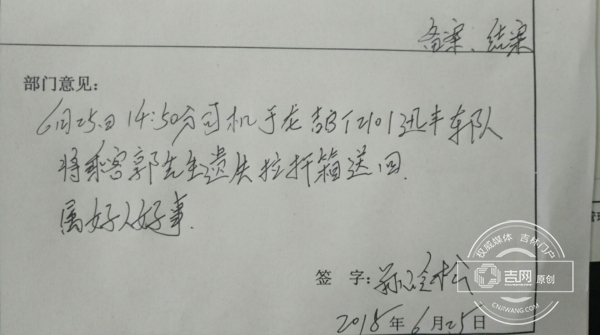 备案、结案
部门意见：
6月25日14:50分司机于龙吉BT2101迅丰车队
将乘客郭先生遗失拉杆箱送回.
属好人好事.
签 字：
2018年6月25日
权威媒体 吉林门户
吉网 原创
CNJIWANG.COM